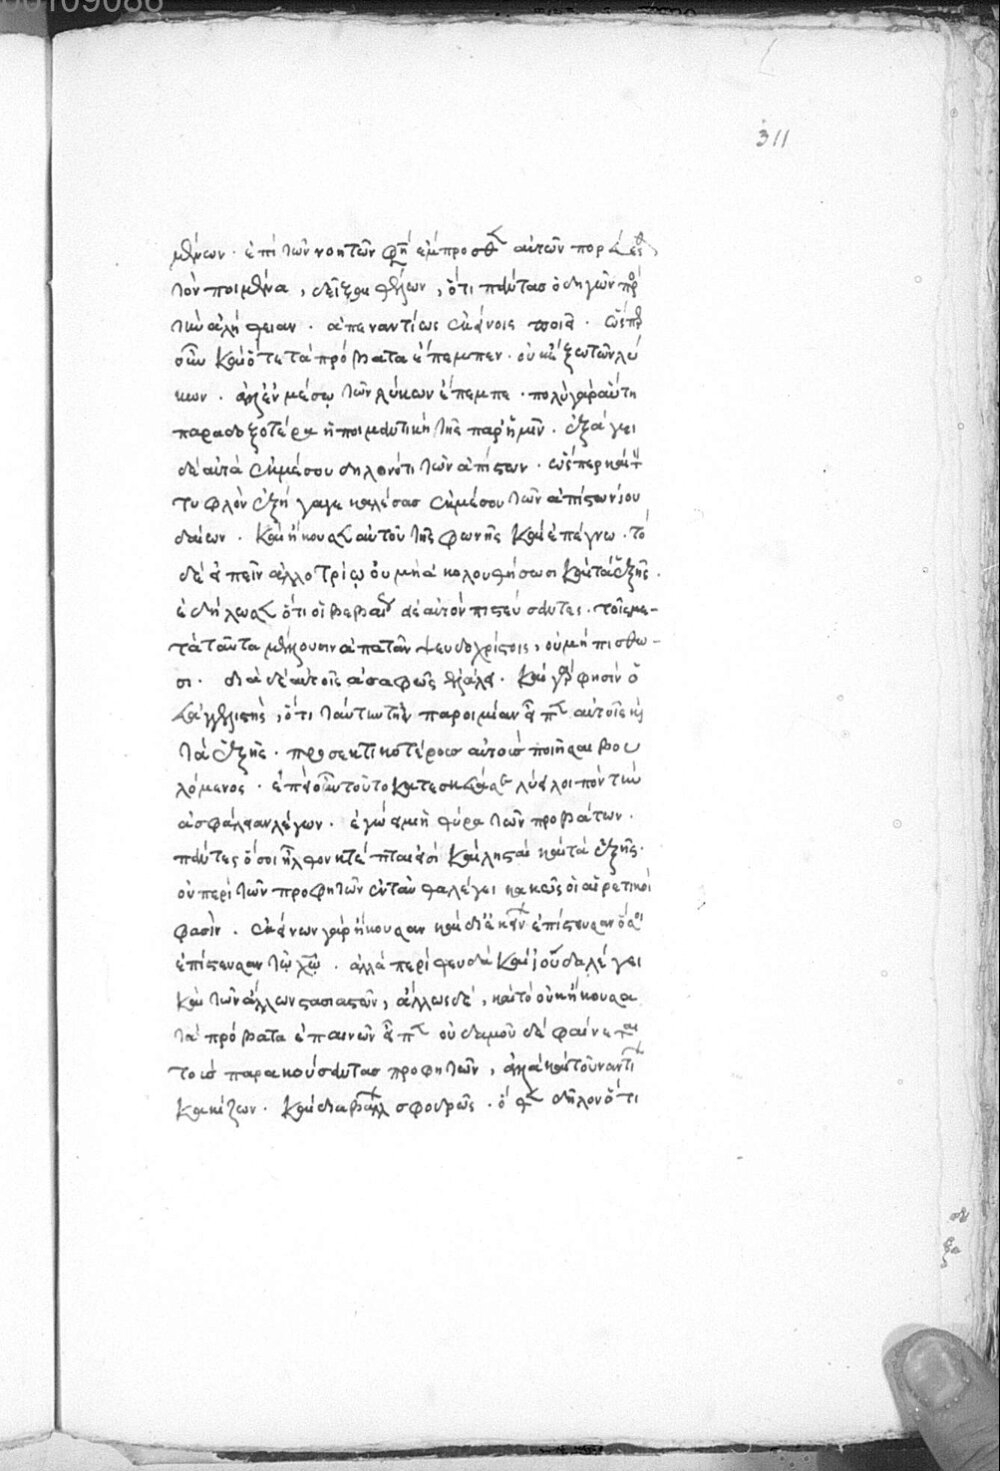 311
μένων. ἐπὶ τῶν νοητῶν φησὶ ἔμπροσθεν αὐτῶν πορεύεσθ
τὸν ποιμένα, δεῖξαι θέλων, ὅτι πάντας ὁδηγῶν πρὸς
τὴν ἀλήθειαν. ἀπεναντίως ἐκείνοις ποιεῖ. ὥσπερ
οὖν καὶ ὅτε τὰ πρόβατα ἔπεμπεν. οὐκ ἔξω τῶν λύ
κων. ἀλλ' ἐν μέσῳ τῶν λύκων ἔπεμπε. πολὺ γὰρ αὕτη
παραδοξοτέρα ἡ ποιμαντικὴ τῆς παρ' ἡμῖν. ἐξάγει
δὲ αὐτὰ ἐκ μέσου δηλονότι τῶν ἀπίστων. ὥσπερ καὶ τὸν
τυφλὸν ἐξήγαγε καλέσας ἐκ μέσου τῶν ἀπίστων ἰου
δαίων. καὶ ἤκουσεν αὐτοῦ τῆς φωνῆς καὶ ἐπέγνω. τὸ
δὲ εἰπεῖν ἀλλοτρίῳ οὐ μὴ ἀκολουθήσωσι καὶ τὰ ἑξῆς.
ἐδήλωσεν ὅτι οἱ βεβαίως εἰς αὐτὸν πιστεύσαντες. τοῖς με-
τὰ ταῦτα μέλλουσιν ἀπατᾶν ψευδοχρίστοις, οὐ μὴ πισθω-
σι. διὰ δὲ αὐτοῖς ἀσαφῶς διελέγ. καὶ γάρ φησὶν ὁ
εὐαγγελιστὴς, ὅτι ταύτην τὴν παροιμίαν εἶπεν αὐτοῖς κ
τὰ ἑξῆς. προσεκτικοτέροις αὐτοὺς ποιῆσαι βου
λόμενος. ἐπεὶ οὖν τοῦτο κατεσκεύασε λύει λοιπὸν τὴν
ἀσφάλειαν λέγων. ἐγώ εἰμι ἡ θύρα τῶν προβάτων.
πάντες ὅσοι ἦλθον κλέπται εἰσὶ καὶ λησταὶ καὶ τὰ ἑξῆς.
οὐ περὶ τῶν προφητῶν ἐνταῦθα λέγει κακῶς οἱ αἱρετικοί
φασὶν. ἐκείνων γὰρ ἤκουσαν καὶ δι' ἐκείνων ἐπίστευσαν ὅσοι
ἐπίστευσαν τῷ χῷ. ἀλλὰ περὶ θευδᾶ καὶ ἰούδα λέγει
καὶ τῶν ἄλλων στασιαστῶν, ἄλλως δὲ, καὶ τὸ οὐκ ἤκουσαν
τὰ πρόβατα ἐπαινῶν εἶπεν οὐδαμοῦ δὲ φαίνεται
τοὺς παρακούσαντας προφητῶν, ἀλλὰ καὶ τοὐναντίον
κακίζων. καὶ διαβάλλων σφοδρῶς. ὅθεν δῆλον ὅτι